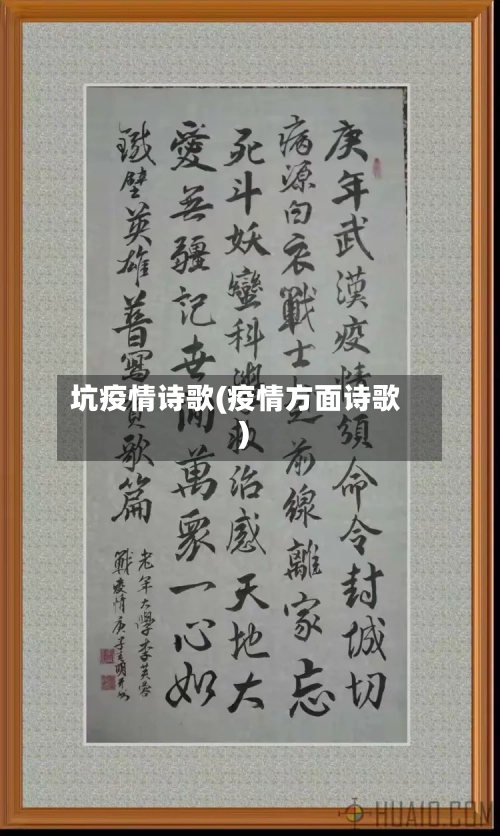 庚年武漢疫情頒命令封城切
病源白衣戰士前線離家忘
死斗妖蠻科學救治感天地大
愛無疆記世間萬眾一心如
鐵壁英雄普寫歌篇
老年大學李芙蓉
戰疫情庚子
坑疫情诗歌(疫情方面诗歌
)
HUAIO.COM